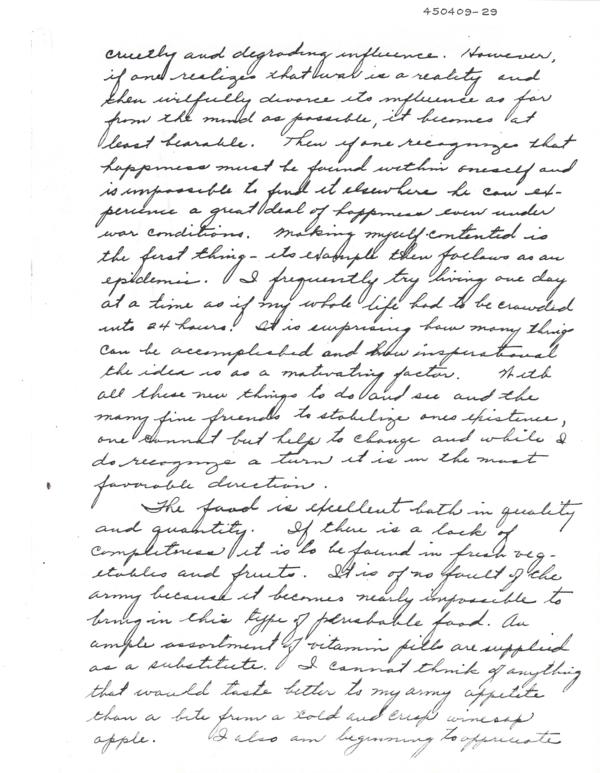 450409-29
cruelty and degrading influence. However,
if one realizes that war is a reality and
then wilfully divorce its influence as far
from the mind as possible, it becomes at
least bearable. Then if one recognizes that
happiness must be found within oneself and
is impossible to find it elsewhere he can ex-
perience a great deal of happiness even under
war conditions. Making myself contented is
the first thing - its example then follows as an
epidemic. I frequently try living one day
at a time as if my whole life had to be crowded
into 24 hours. It is surprising how many things
can be accomplished and how inspirational
the idea is as a motivating factor. With
all these new things to do and see and the
many fine friends to stabilize ones existence,
one cannot but help to change and while I
do recognize a turn it is in the most
favorable direction.
The food is excellent both in quality
and quantity. If there is a lack of
completeness it is to be found in fresh veg-
etables and fruits. It is of no fault of the
army because it becomes nearly impossible to
bring in this type of perishable food. An
ample assortment of vitamin pills are supplied
as a substitute. I cannot think of anything
that would taste better to my army appetite
than a bite from a cold and crisp winesap
apple. I also am beginning to appreciate